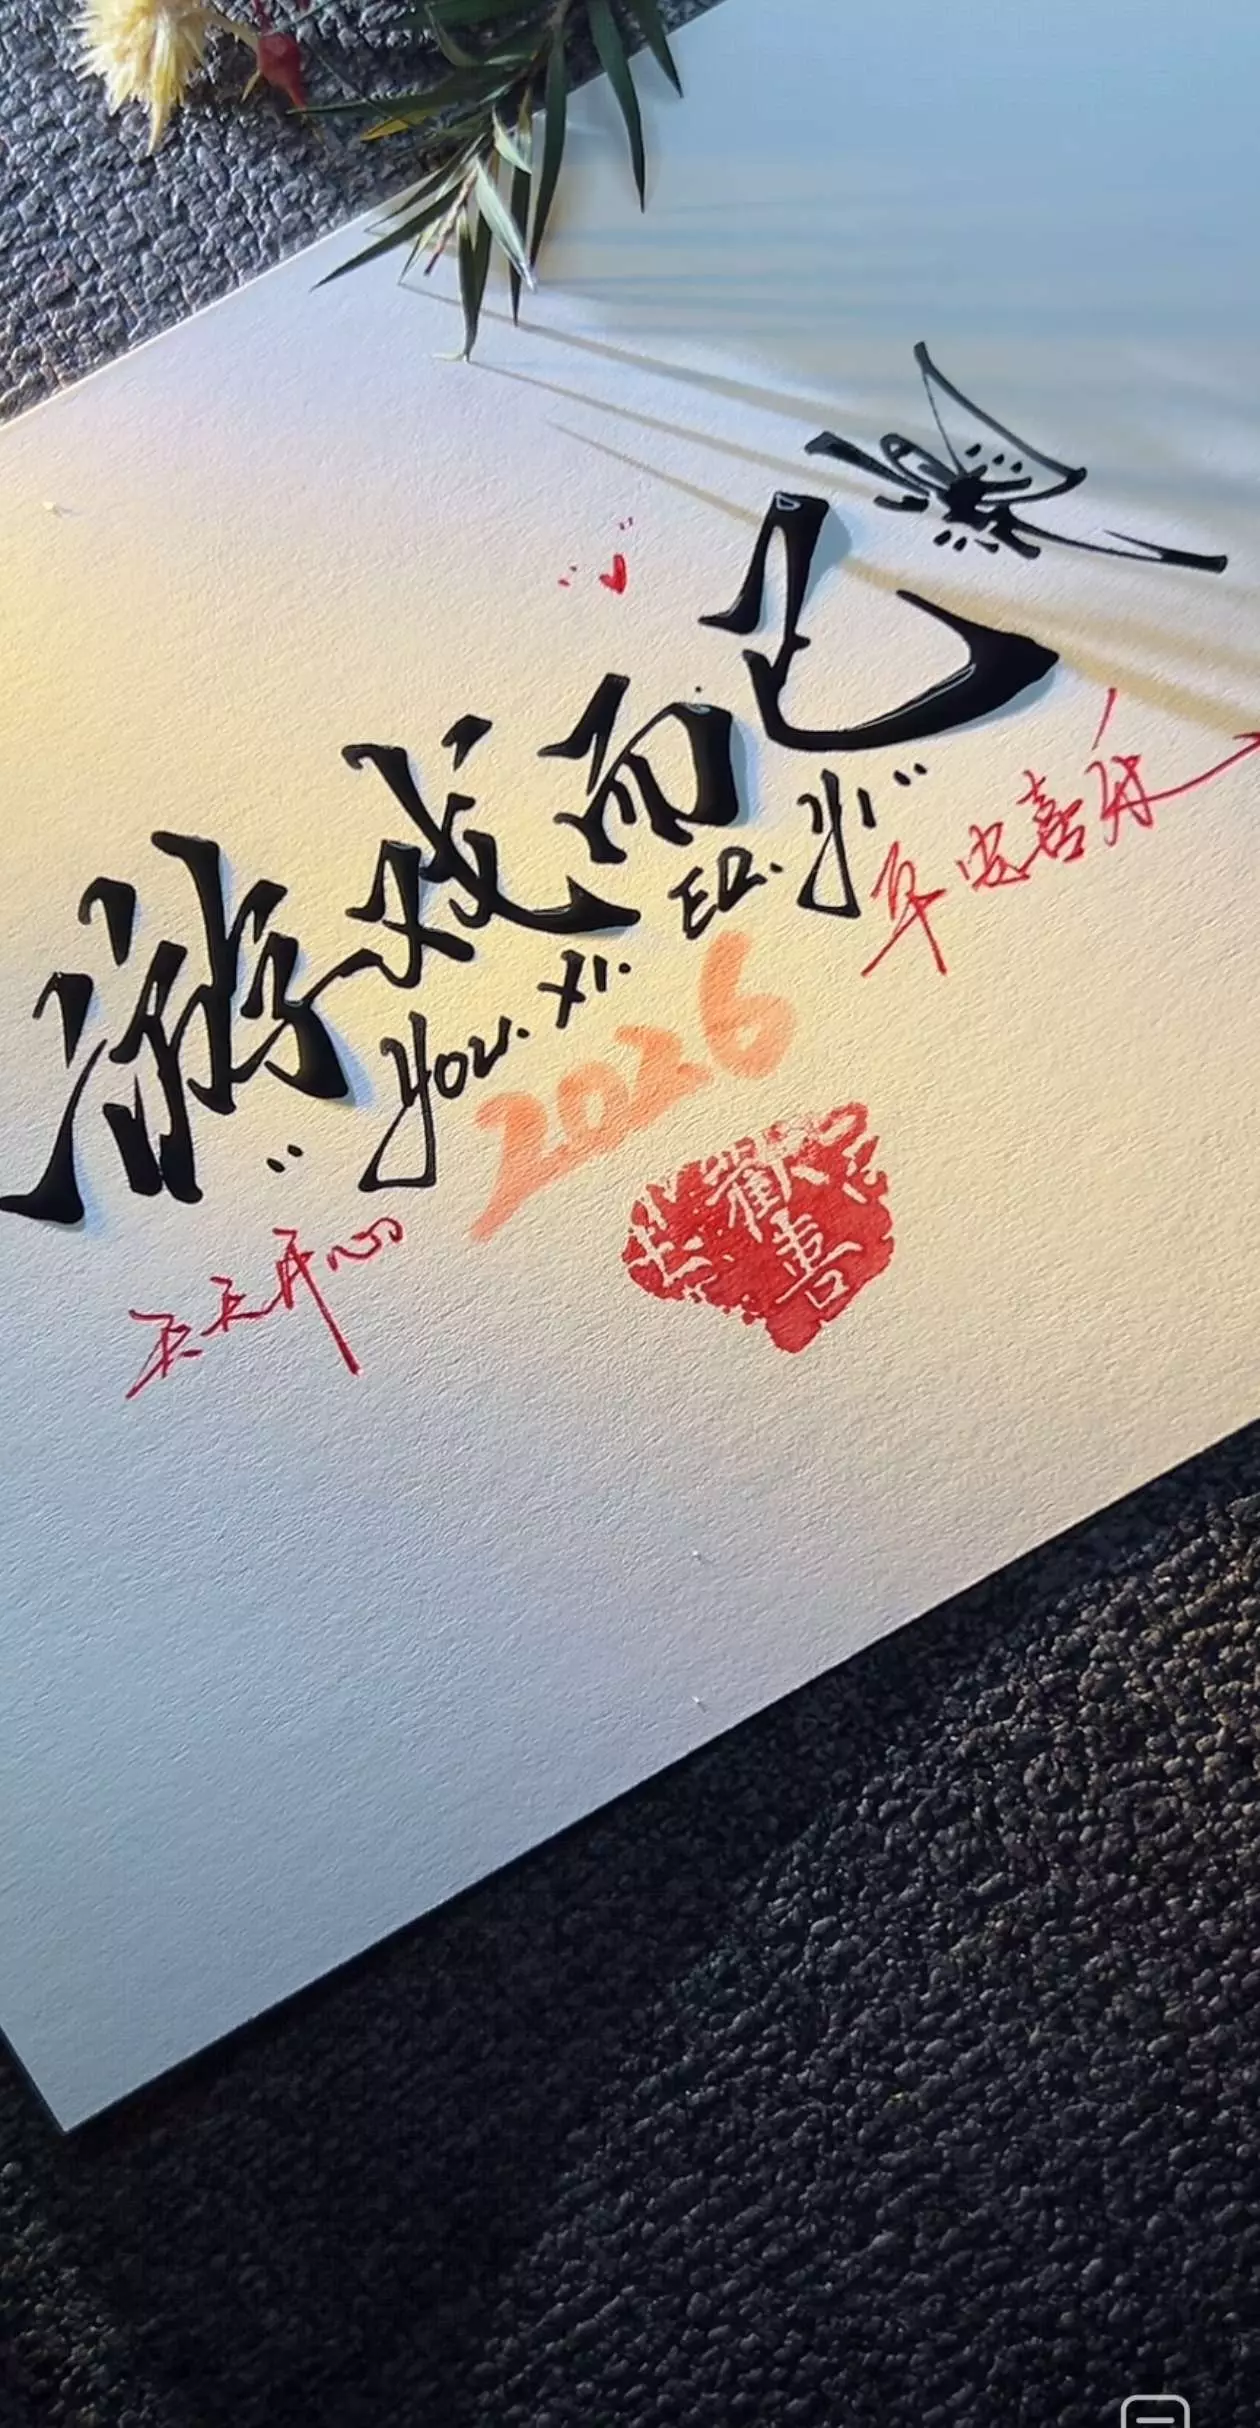 游戏而已
YOU. XI. ER. YI
平安喜乐
2026
天天开心
歡
喜